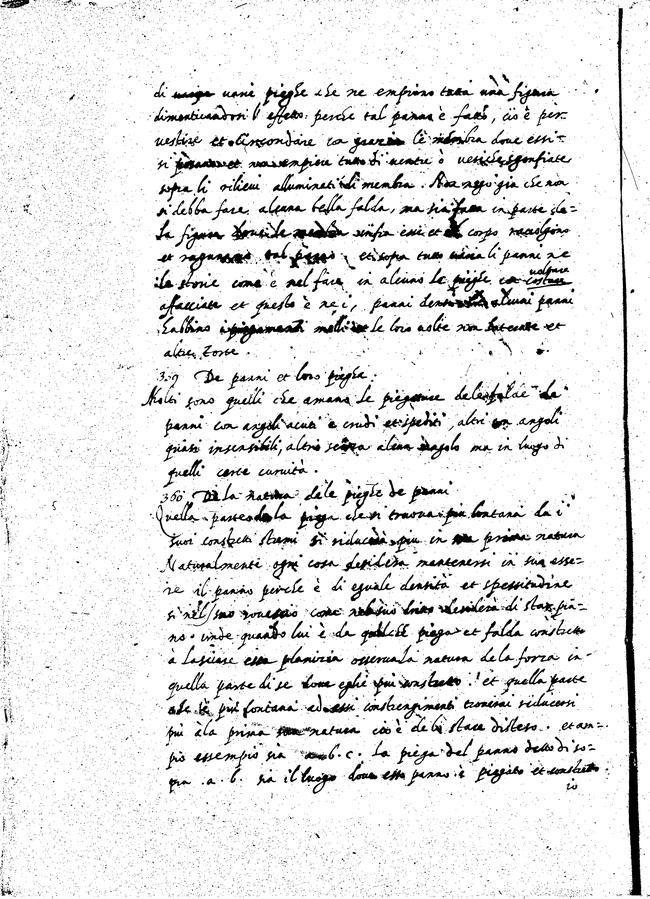 di uarie pieghe che ne empiono tutta una figura
dimenticandosi l'effetto perche tal panno è fatto, ciò è per
uestire et circondare con gratia le membra doue essi
si posano et non empire tutto di uentri ò uesiche sgonfiate
sopra li rilieui alluminati di membra. Non nego gia che non
si debba fare alcuna bella falda, ma sia fatta in parte de
la figura doue le membra infra esse et il corpo racolgono
et ragunano tal panno. et sopra tutto uaria li panni ne
le storie come è nel fare in alcuno le pieghe con uolgare
affacciate et questo è ne i, panni densi alcuni panni
habbino i piegamenti molli et le loro uolte non laterate et
altre torte.
359 De panni et loro pieghe.
Molti sono quelli che amano le piegature dele falde de i
panni con angoli acuti e crudi et spediti, altri con angoli
quasi insensibili, altri senza alcun angolo ma in luogo di
quelli certe curuità.
360 De la natura dele pieghe de panni
Quella parte de la piega che si truoua piu lontana da i
suoi constretti stremi si riducerà piu in sua prima natura
Naturalmente ogni cosa desidera mantenersi in sua esse-
re il panno perche è di eguale densità et spessitudine
si nel suo rouescio come nel suo dritto desidera di star pia-
no. onde quando lui è da qualche piega et falda constretto
à lasciare essa planizia osserua la natura de la forza in
quella parte di se doue eglie piu constretto. et quella parte
che è piu lontana ad essi constrengimenti trouerai riducersi
piu ala prima sua natura cioè delo stare disteso. et an-
pio essempio sia a.b.c. la piega del panno detto di so-
pra .a.b. sia il luogo doue esso panno è piegato et constretto
io